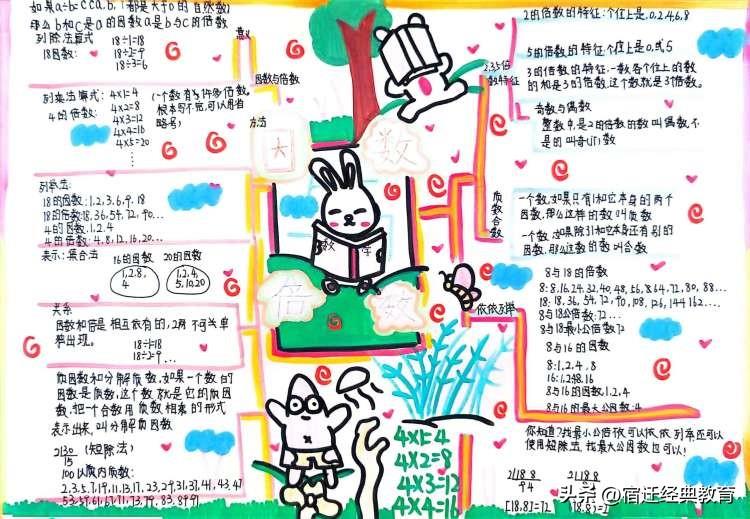 如果a÷b=c(a,b,c都是大于0的自然数)
那么b和c是a的因数a是b与c的倍数
列除法算式
18因数:
18÷1=18
18÷2=9
18÷3=6
意义
因数与倍数
列乘法算式:
4的倍数:
4×1=4
4×2=8
4×3=12
4×4=16
4×5=20
……
(一个数有多种多倍数,
根本写不完,可以用省
略号)
方法
列举法:
18的因数:1,2,3,6,9,18
18的倍数:18,36,54,72,90…
4的因数:1,2,4
4的倍数:4,8,12,16,20…
表示:集合法
16的因数
1,2,8,
4
20的因数
1,2,4,
5,10,20
关系
因数和倍是相互依存的,2两不可关单
独出现。
18÷1=18
18÷2=9…
质因数和分解质数,如果一个数的
因数是质数,这个数就是它的质因
数,把一个合数用质数相乘的形式
表示出来,叫分解质因数
2|30 (短除法)
15
100以质内质数:
2,3,5,7,19,11,13,17,23,29,31,37,41,43,47
53,59,61,67,71,73,79,83,89,97
因
数
数学
倍
数
4×1=4
4×2=8
4×3=12
4×4=16
2,3,5倍
数特征
2的倍数的特征:个位上是,0,2,4,6,8
5的倍数的特征:个位上是,0,或5
3的倍数的特征:一数各个位上的数
的和是3的倍数,这个数就是3倍数。
奇数与偶数
整数中,是2的倍数的数叫偶数,不
是的叫奇(jī)数
质数
合数
一个数,如果只有1和它本身的两个
因数,那么这样的数叫质数
一个数,如果除1和它本身还有别的
因数,那么这数的数叫合数
依依列举
8与18的倍数
8:8,16,24,32,40,48,56,8,64,72,80,88…
18:18,36,54,72,90,108,126,144,162…
8与18公倍数:72…
8与18最小公倍数72
8与16的因数
8:1,2,4,8
16:1,2,4,8,16
8与16的因数,1,2,4
8与16的最大公因数:4
你知道?找最小公倍你可以依,依列举还可以
使用短除法,找最大公因数也可以!
2|18 8
9 4
[18,8]=72
2|18 8
(18,8)=2
头条@宿迁经典教育